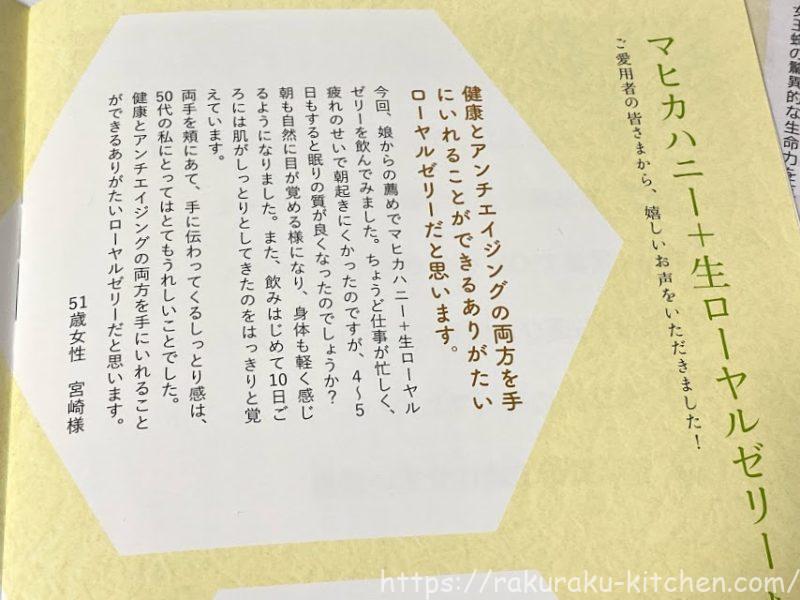 女王蜂の驚異的な生命力を
マヒカハニー+生ローヤルゼリー
ご愛用者の皆さまから、嬉しいお声をいただきました!
健康とアンチエイジングの両方を手
にいれることができるありがたい
ローヤルゼリーだと思います。
今回、娘からの薦めでマヒカハニー+生ローヤル
ゼリーを飲んでみました。ちょうど仕事が忙しく、
疲れのせいで朝起きにくかったのですが、4〜5
日もすると眠りの質が良くなったのでしょうか?
朝も自然に目が覚める様になり、身体も軽く感じ
るようになりました。また、飲みはじめて10日ご
ろには肌がしっとりとしてきたのをはっきりと覚
えています。
両手を頬にあて、手に伝わってくるしっとり感は、
50代の私にとってはとてもうれしいことでした。
健康とアンチエイジングの両方を手にいれること
ができるありがたいローヤルゼリーだと思います。
51歳女性 宮崎様
https://rakuraku-kitchen.com/